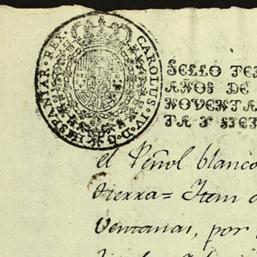 CAROLUS IV D. G. HISPANIAR. REX
SELLO TE
AÑOS DE
NOVENTA
TA Y SIE
el Peñol blanco
tierra = Item
Ventanas, por